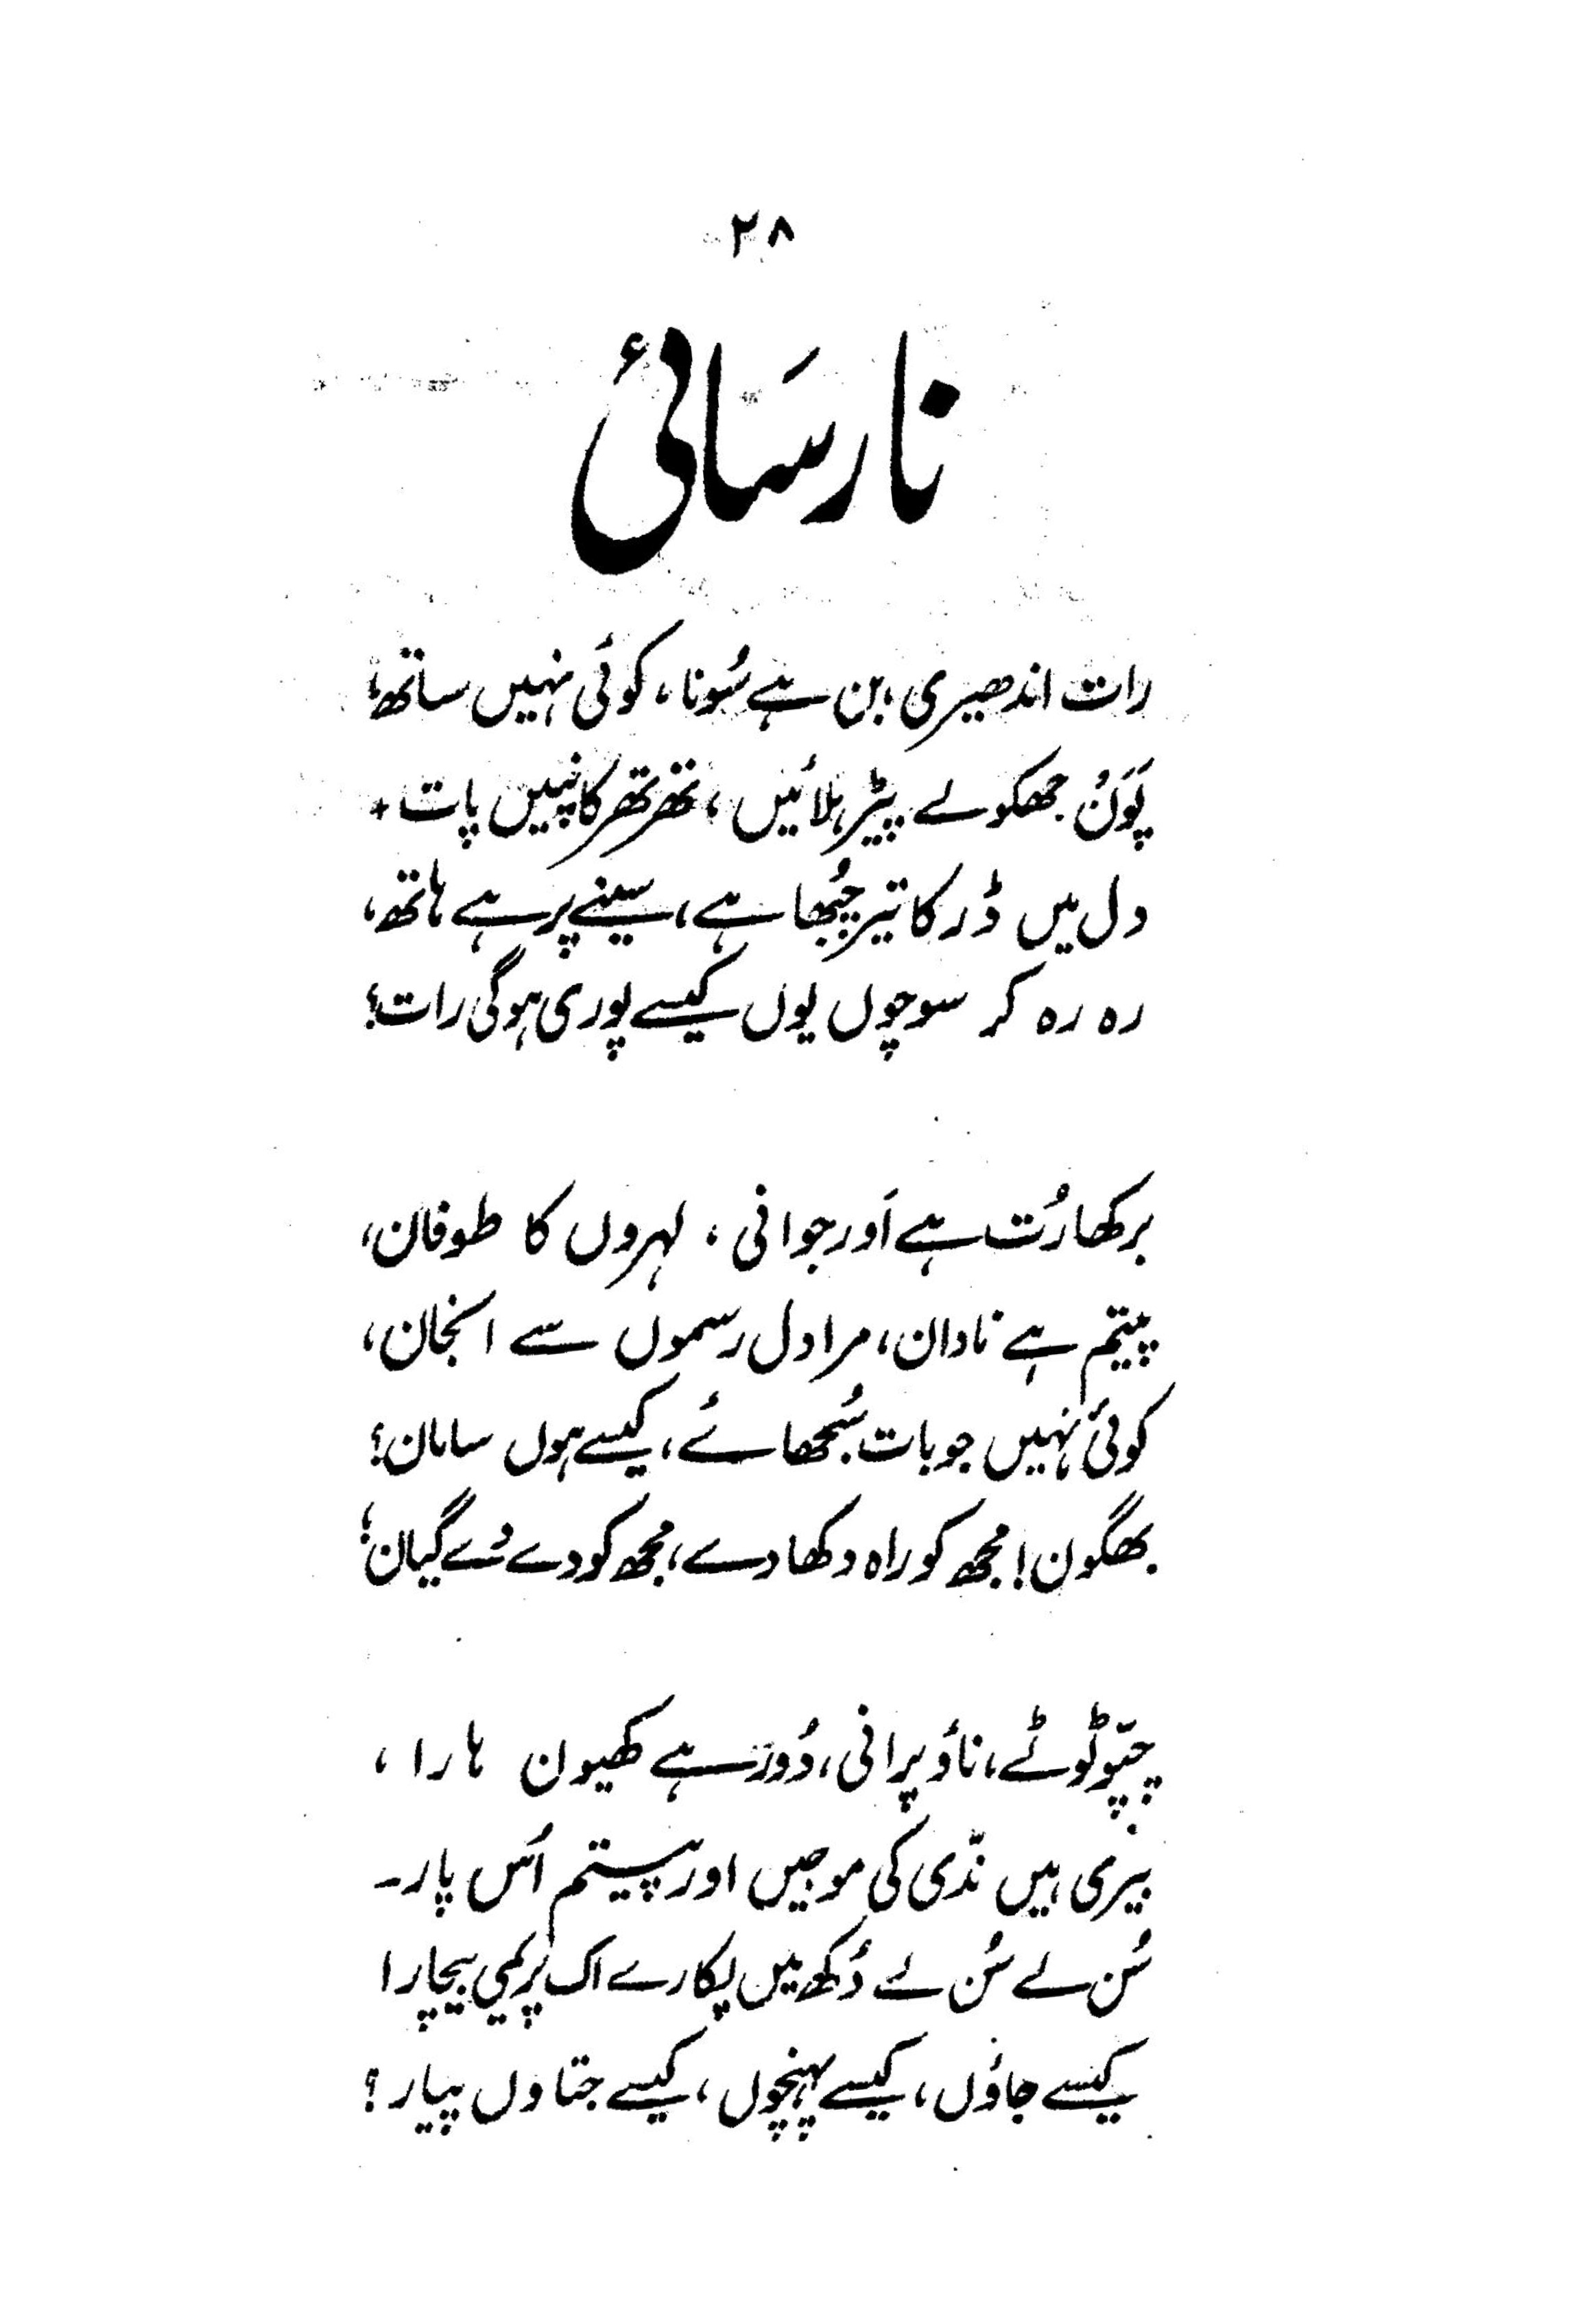 ۲۸
نارسَائی
رات اندھیری، بن ہے سُونا، کوئی نہیں ساتھ،
پَوَنْ جھکولے پیڑ ہلائیں، تھر تھر کانپیں پات،
دل میں ڈر کا تیر چُبھا ہے، سینے پر ہے ہاتھ،
رہ رہ کر سوچوں یوں کیسے پوری ہوگی رات؟
برکھا رُت ہے اَور جوانی، لہروں کا طوفان،
پیتم ہے نادان، مرا دل رسموں سے انجان،
کوئی نہیں جو بات سُجھائے، کیسے ہوں سامان؟
بھگون! مجھ کو راہ دکھا دے، مجھ کو دے دے گیان!
چپّو ٹوٹے، ناؤ پرانی، دُور ہے کھیون ہارا،
بیری ہیں ندّی کی موجیں اور پیتم اُس پار۔
سُن لے سُن لے دُکھ میں پکارے اک پریمی بیچارا
کیسے جاؤں، کیسے پہنچوں، کیسے جتاوں پیار؟